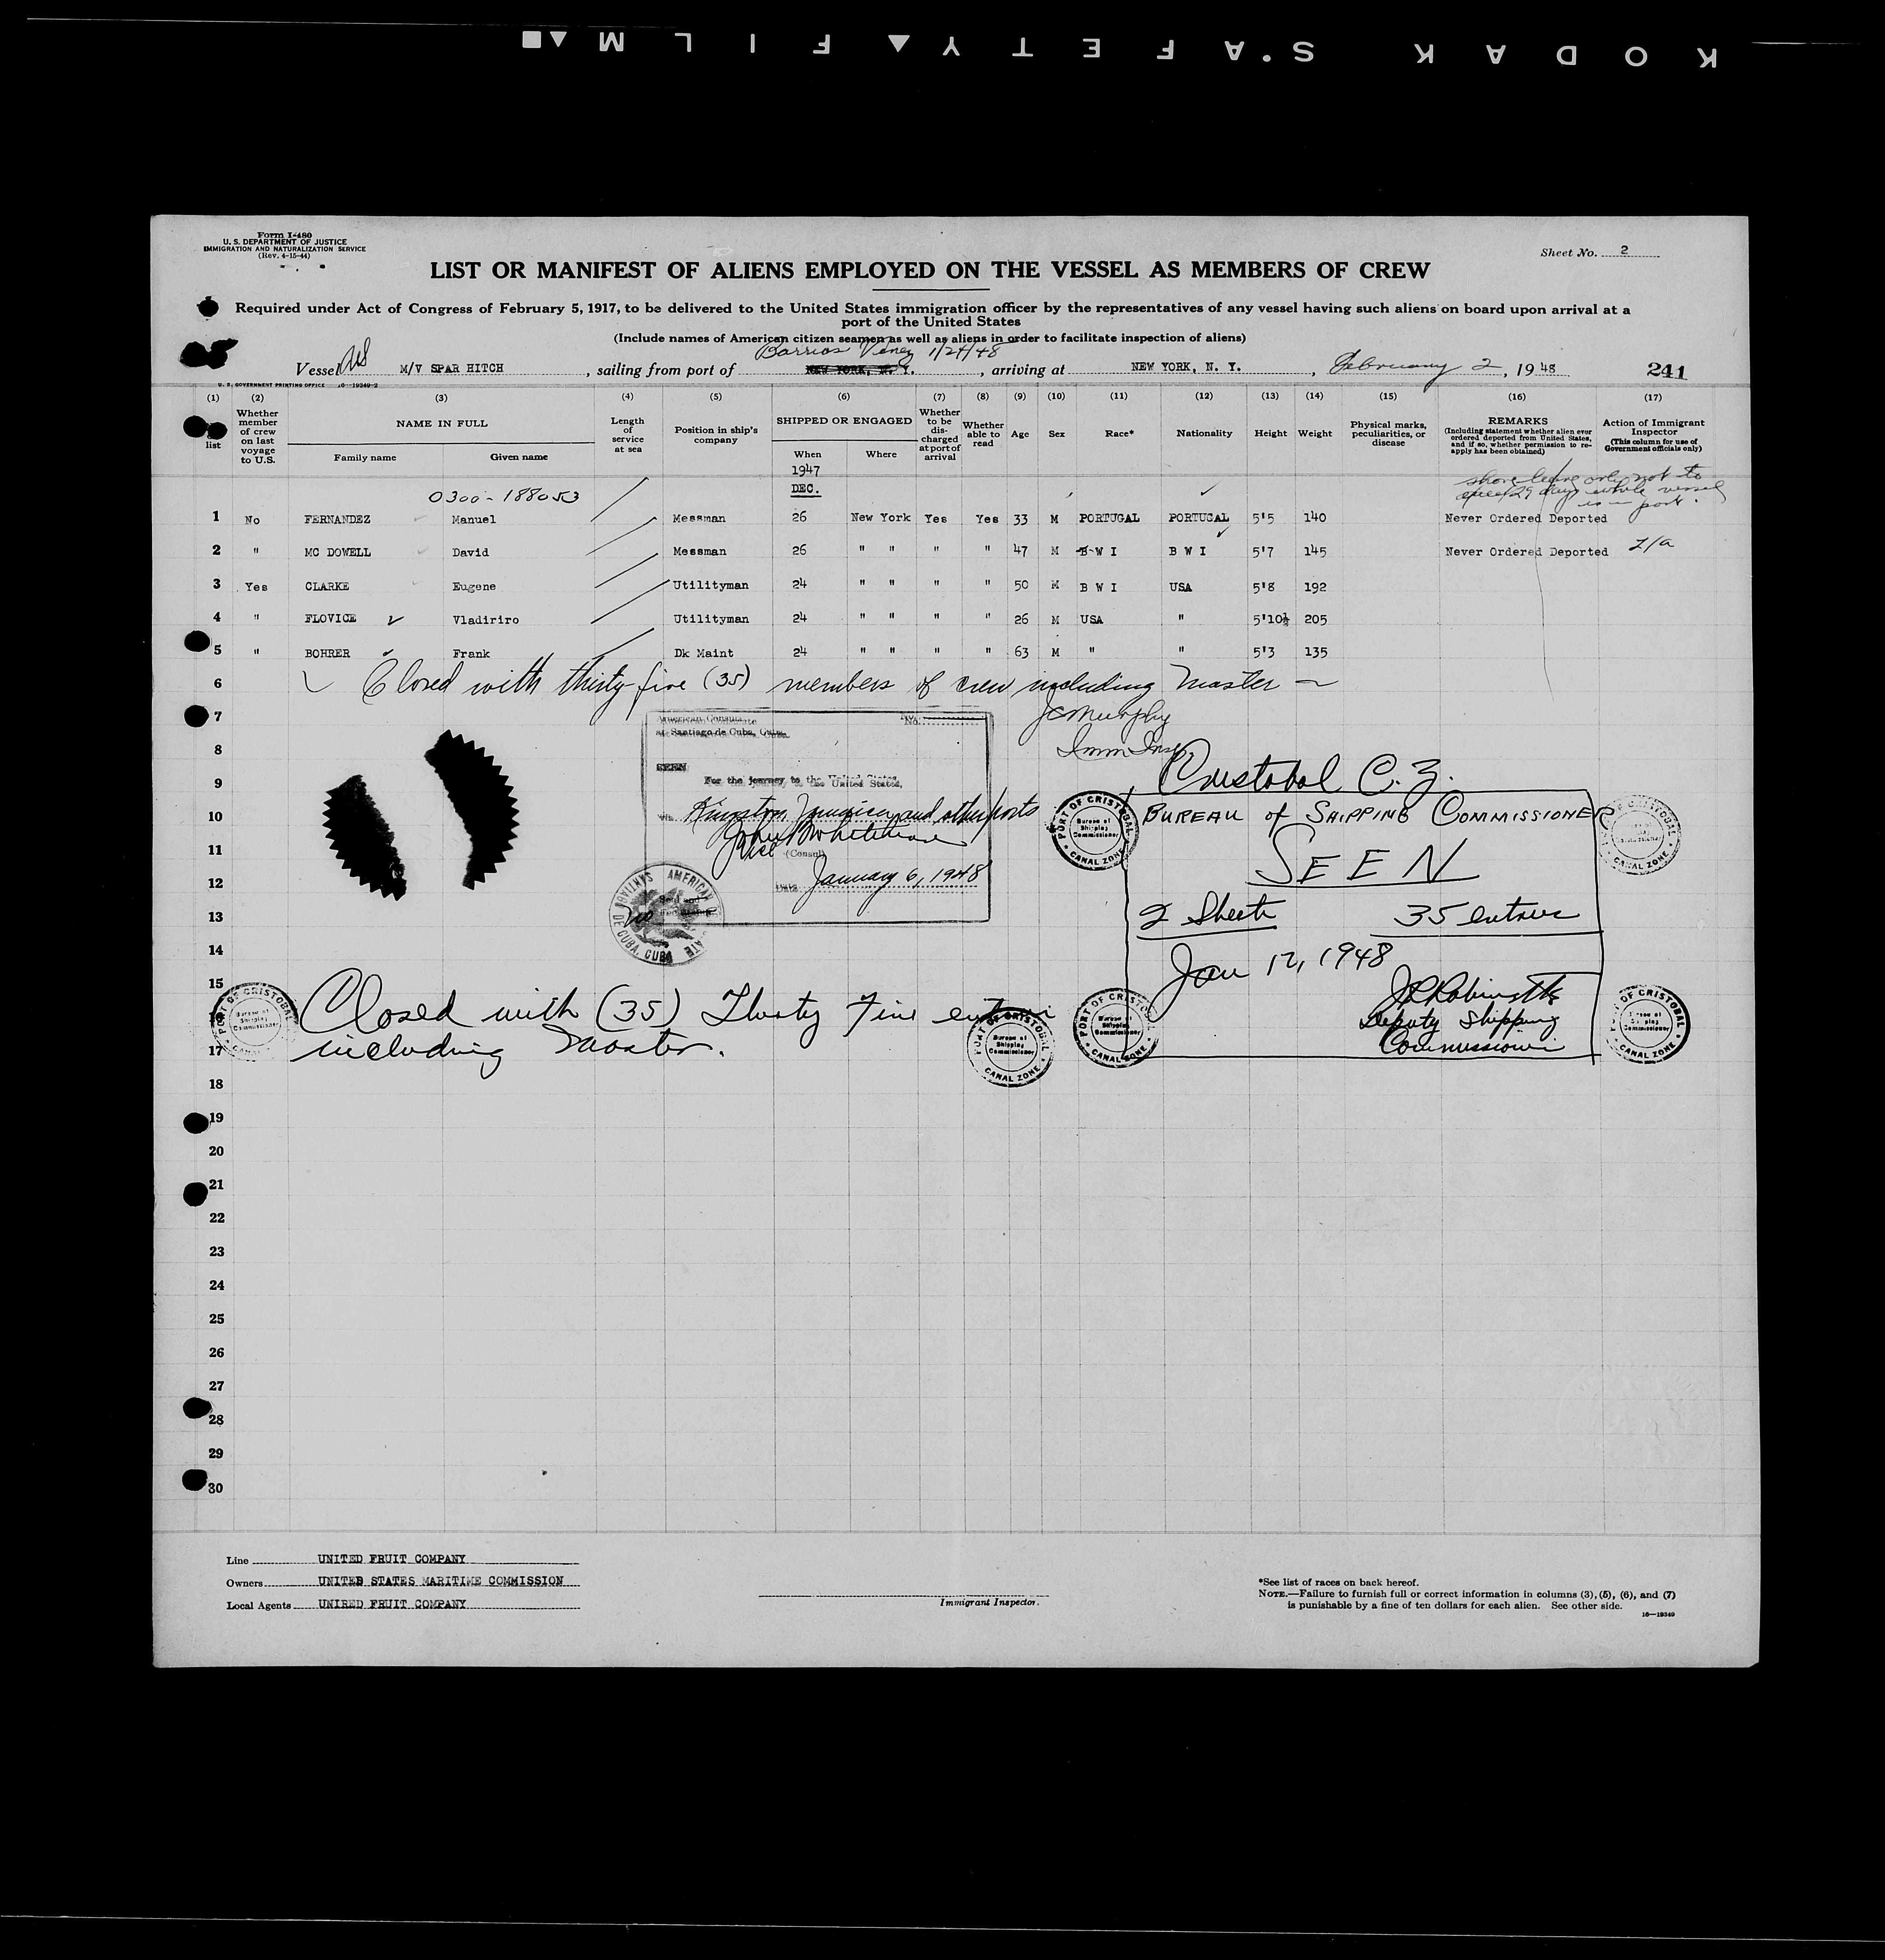 KODAK S'AFETY FILM
Form I-480
U. S. DEPARTMENT OF JUSTICE
IMMIGRATION AND NATURALIZATION SERVICE
(Rev. 4-15-44)
Sheet No. 2
LIST OR MANIFEST OF ALIENS EMPLOYED ON THE VESSEL AS MEMBERS OF CREW
Required under Act of Congress of February 5, 1917, to be delivered to the United States immigration officer by the representatives of any vessel having such aliens on board upon arrival at a
port of the United States
(Include names of American citizen seamen as well as aliens in order to facilitate inspection of aliens)
Barrios 1/24/48
Vessel M/V SPAR HITCH, sailing from port of NEW YORK, N. Y., arriving at NEW YORK, N. Y., February 2, 1948 241
U. S. GOVERNMENT PRINTING OFFICE 16-19349-2
(1) (2) (3) (4) (5) (6) (7) (8) (9) (10) (11) (12) (13) (14) (15) (16) (17)
list
Whether member of crew on last voyage to U.S.
NAME IN FULL
Family name Given name
Length of service at sea
Position in ship's company
SHIPPED OR ENGAGED
When Where
1947
DEC.
Whether to be discharged at port of arrival
Whether able to read
Age
Sex
Race*
Nationality
Height
Weight
Physical marks, peculiarities, or disease
REMARKS
(Including statement whether alien ever ordered deported from United States, and if so, whether permission to reapply has been obtained)
Action of Immigrant Inspector
(This column for use of Government officials only)
0300-188053
shore leave only not to
exceed 29 days while vessel
is in port.
1 No FERNANDEZ Manuel Messman 26 New York Yes Yes 33 M PORTUGAL PORTUGAL 5'5 140 Never Ordered Deported
2 " MC DOWELL David Messman 26 " " " " 47 M B W I B W I 5'7 145 Never Ordered Deported
3 Yes CLARKE Eugene Utilityman 24 " " " " 50 M B W I USA 5'8 192
4 " FLOVICE Vladiriro Utilityman 24 " " " " 26 M USA " 5'10½ 205
5 " BOHRER Frank Dk Maint 24 " " " " 63 M " " 5'3 135
6 Closed with thirty-five (35) members of crew including Master
7 JC Murphy
8 Imm Insp.
9
10
11
12
13
14
15
American Consulate
at Santiago de Cuba, Cuba.
No.
SEEN
For the journey to the United States,
via Kingston, Jamaica and other ports
Vice (Consul)
Date January 6, 1948
AMERICAN CONSULATE SANTIAGO DE CUBA, CUBA
Cristobal C. Z.
BUREAU of SHIPPING COMMISSIONER
SEEN
2 Sheets 35 entries
Jan 12, 1948
Deputy Shipping
Commissioner
PORT OF CRISTOBAL
Bureau of
Shipping
Commissioner
CANAL ZONE
PORT OF CRISTOBAL
CANAL ZONE
PORT OF CRISTOBAL
Bureau of
Shipping
Commissioner
CANAL
PORT OF CRISTOBAL
Bureau of
Shipping
Commissioner
CANAL ZONE
PORT OF CRISTOBAL
Bureau of
Shipping
Commissioner
CANAL ZONE
PORT OF CRISTOBAL
Bureau of
Shipping
Commissioner
CANAL ZONE
Closed with (35) Thirty Five entries
17 including Master.
18
19
20
21
22
23
24
25
26
27
28
29
30
Line UNITED FRUIT COMPANY
Owners UNITED STATES MARITIME COMMISSION
Local Agents UNIRED FRUIT COMPANY
Immigrant Inspector.
*See list of races on back hereof.
NOTE.—Failure to furnish full or correct information in columns (3), (5), (6), and (7)
is punishable by a fine of ten dollars for each alien. See other side.
16—19349